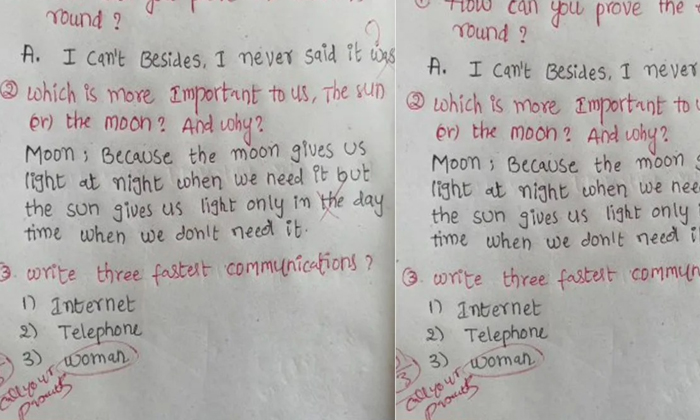 round ?
A. I can't Besides, I never said it was
② which is more Important to us, The sun
(or) the moon ? And why?
Moon ; Because the moon gives us
light at night when we need it but
the sun gives us light only in the day
time when we don't need it.
③. write three fastest communications ?
1) Internet
2) Telephone
3) woman
call your
parents
① How can you prove the
round ?
A. I can't Besides, I never
② which is more Important to
(or) the moon ? And why?
Moon ; Because the moon
light at night when we
the sun gives us light only
time when we don't need
③. write three fastest
1) Internet
2) Telephone
3) woman
call your
parents